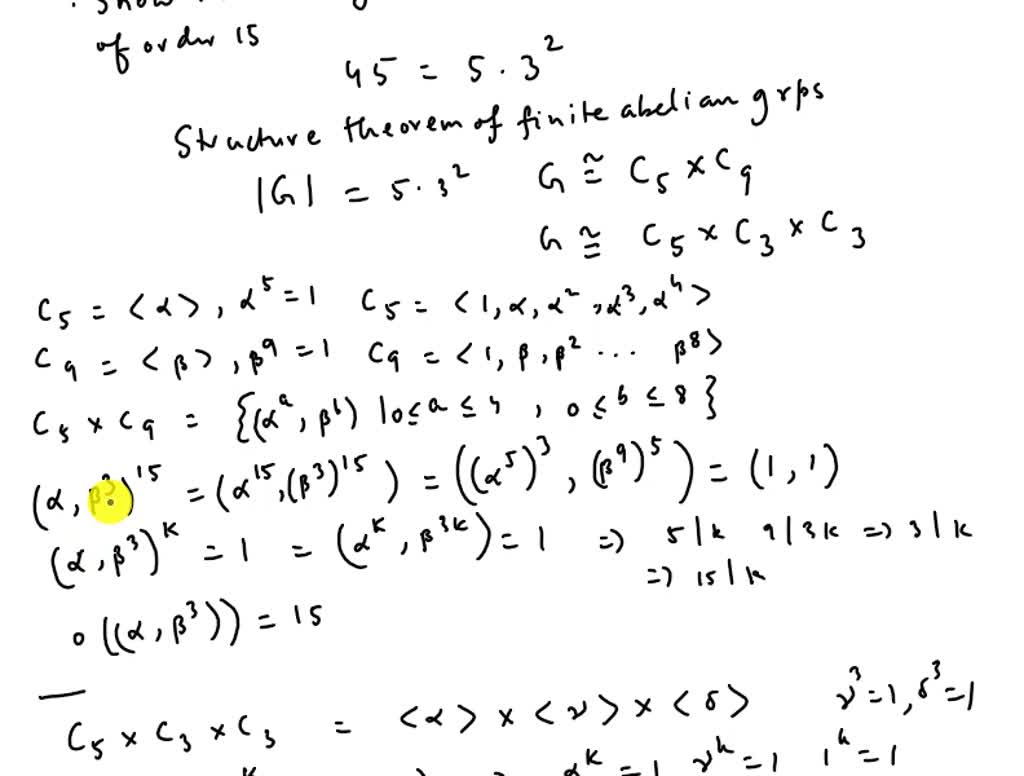 of order 15
45 = 5 · 3²
Structure theorem of finite abelian grps
|G| = 5·3² G ≅ C₅ × C₉
G ≅ C₅ × C₃ × C₃
C₅ = <α>, α⁵ = 1 C₅ = <1, α, α², α³, α⁴>
C₉ = <β>, β⁹ = 1 C₉ = <1, β, β² ... β⁸>
C₅ × C₉ = {(αᵃ, βᵇ) | 0 ≤ a ≤ 4, 0 ≤ b ≤ 8}
(α, β³)¹⁵ = (α¹⁵, (β³)¹⁵) = ((α⁵)³, (β⁹)⁵) = (1, 1)
(α, β³)ᵏ = 1 = (αᵏ, β³ᵏ) = 1 => 5|k 9|3k => 3|k
=> 15|k
o((α, β³)) = 15
C₅ × C₃ × C₃ = <α> × <ν> × <δ> ν³ = 1, δ³ = 1
αᵏ = 1 νᵏ = 1 1ᵏ = 1